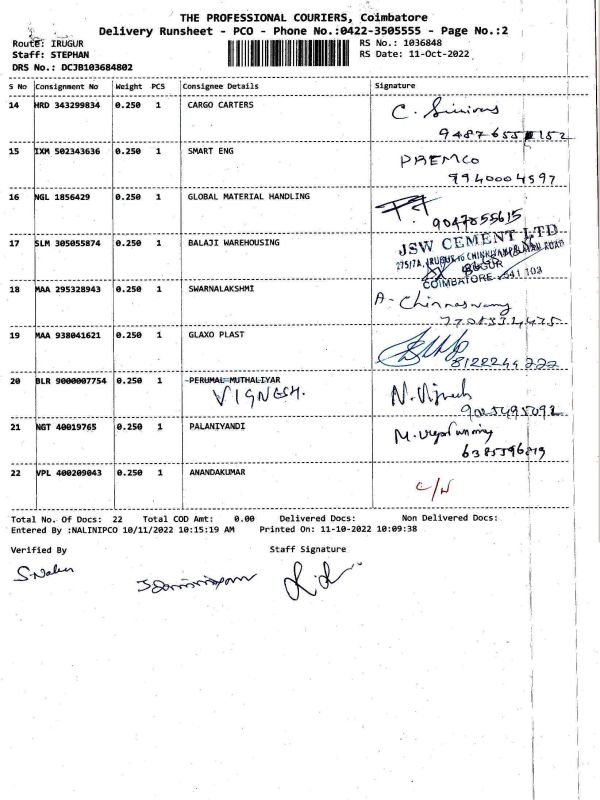 THE PROFESSIONAL COURIERS, Coimbatore
Delivery Runsheet - PCO - Phone No.:0422-3505555 - Page No.:2
Route: IRUGUR RS No.: 1036848
Staff: STEPHAN RS Date: 11-Oct-2022
DRS No.: DCJB103684802
S No Consignment No Weight PCS Consignee Details Signature
14 HRD 343299834 0.250 1 CARGO CARTERS C.
15 IXM 502343636 0.250 1 SMART ENG PREMCO
9940004597
16 NGL 1856429 0.250 1 GLOBAL MATERIAL HANDLING
9047855615
17 SLM 305055874 0.250 1 BALAJI WAREHOUSING JSW CEMENT LTD
COIMBATORE - 641 103
18 MAA 295328943 0.250 1 SWARNALAKSHMI A. Chinnaswamy
19 MAA 938041621 0.250 1 GLAXO PLAST
8122244222
20 BLR 9000007754 0.250 1 PERUMAL MUTHALIYAR
VIGNESH. N. Vignesh
21 NGT 40019765 0.250 1 PALANIYANDI M.
6385396819
22 VPL 400209043 0.250 1 ANANDAKUMAR C/N
Total No. Of Docs: 22 Total COD Amt: 0.00 Delivered Docs: Non Delivered Docs:
Entered By :NALINIPCO 10/11/2022 10:15:19 AM Printed On: 11-10-2022 10:09:38
Verified By Staff Signature